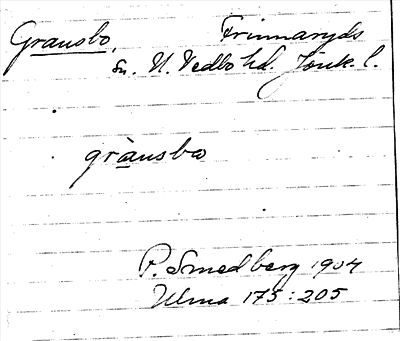 Gransbo, Frinnaryds
sn. N. Vedbo hd. Jönk. l.
grànsbo
P. Smedberg 1904
Ulma 175:205